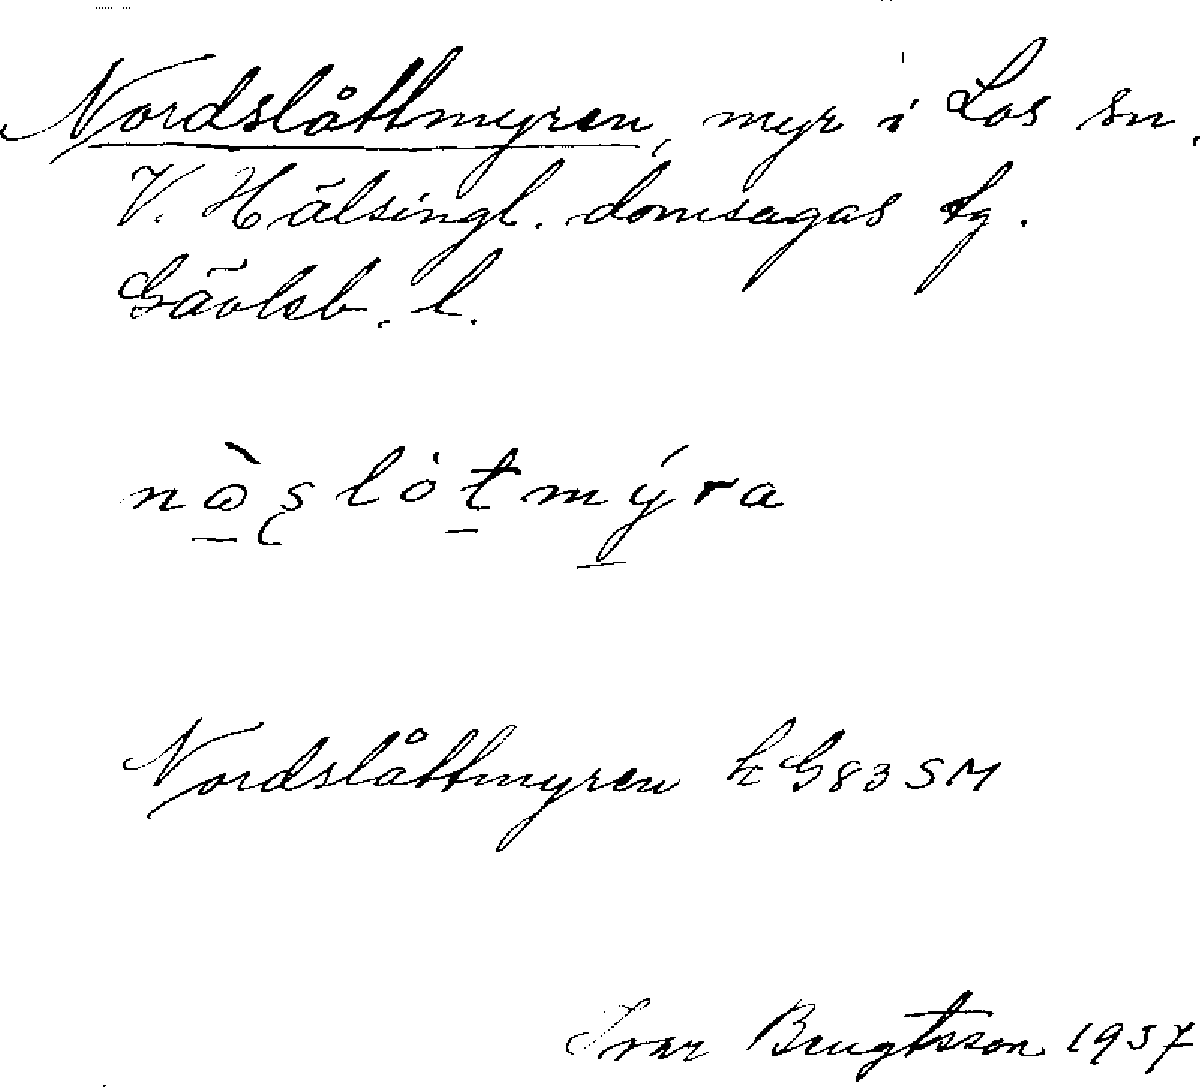 Nordslåttmyren, myr i Los sn,
V. Hälsingl. domsagas tg.
Gävleb. l.
nòs̨lòt̠mýra
Nordslåttmyren kG83SM
Ivar Bengtsson 1937